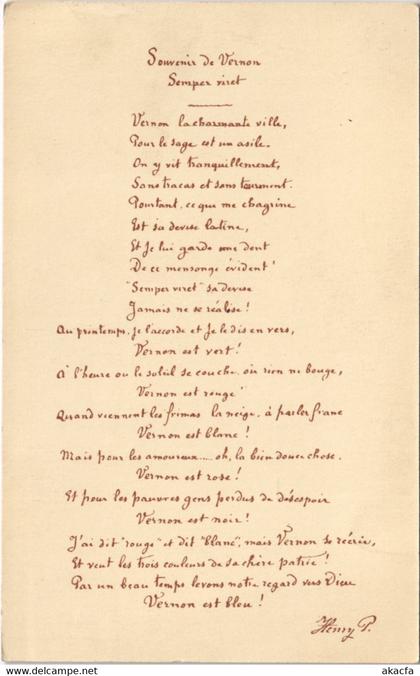 Souvenir de Vernon
Semper viret
Vernon la charmante ville,
Pour le sage est un asile.
On y vit tranquillement,
Sans tracas et sans tourment.
Pourtant, ce que me chagrine
Est sa devise latine,
Et je lui garde une dent
De ce mensonge évident!
"Semper viret" sa devise
Jamais ne se réalise!
Au printemps, je l'accorde et je le dis en vers,
Vernon est vert!
A l'heure ou le soleil se couche, où rien ne bouge,
Vernon est rouge
Quand viennent les frimas la neige, à parler franc
Vernon est blanc!
Mais pour les amoureux.... oh, la bien douce chose.
Vernon est rose!
Et pour les pauvres gens perdus de désespoir
Vernon est noir!
J'ai dit "rouge" et dit "blanc", mais Vernon se récrie,
Et veut les trois couleurs de sa chère patrie!
Par un beau temps levons notre regard vers Dieu
Vernon est bleu!
Henry P.
akacfa
www.delcampe.net